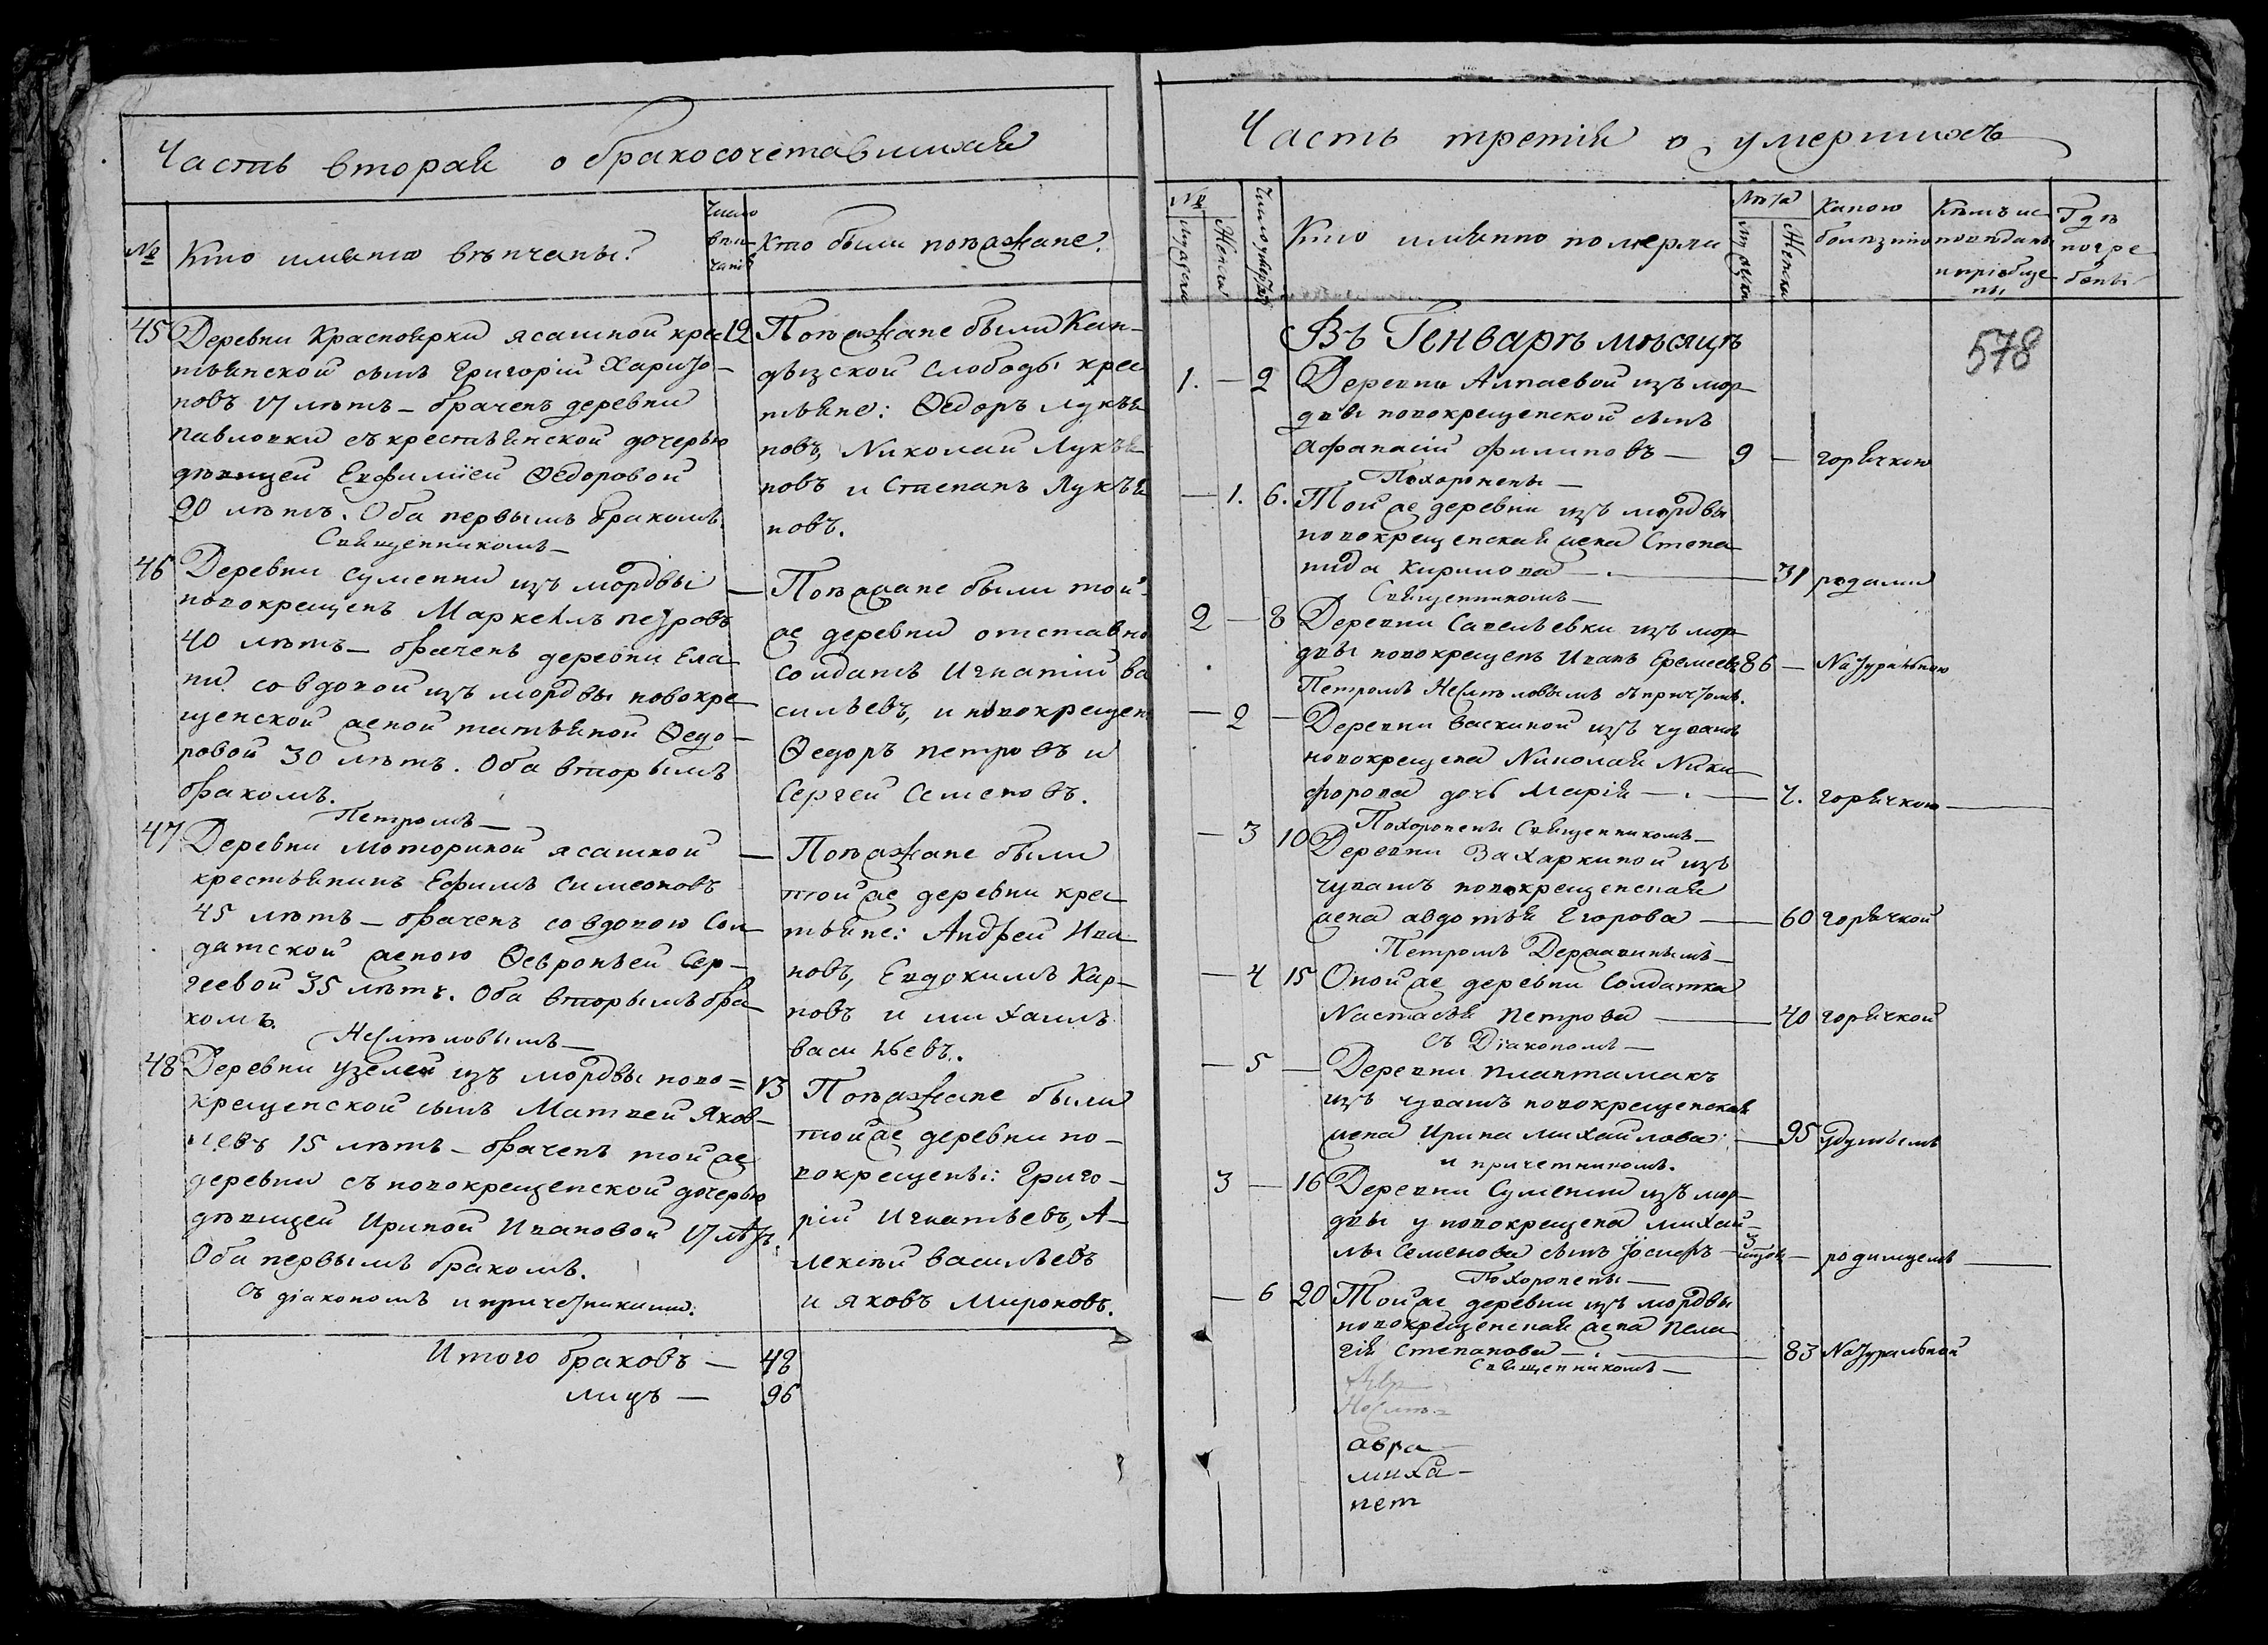 Часть вторая о бракосочетавшихся
№
Кто имянно венчаны?
Число венчанiя
Кто были поѣзжане.
45 Деревни Красноярки ясашной крес 12
тьянской сынъ Григорiй Харито-
новъ 17 лѣтъ - браченъ деревни
Павловки съ крестьянской дочерью
дѣвицей Евфимiей Ѳедоровой
20 лѣтъ. Оба первымъ бракомъ
Священникомъ -
Поѣзжане были Кан-
дызской слободы крес
тьяне: Ѳедоръ Лукья
новъ, Николай Лукья
новъ и Степанъ Лукья
новъ.
46 Деревни Сумении изъ мордвы —
новокрещенъ Маркелъ Петровъ
40 лѣтъ - браченъ деревни Ела
ни со вдовой изъ мордвы новокре
щенской женой Татьяной Ѳедо-
ровой 30 лѣтъ. Оба вторымъ
бракомъ.
Петромъ -
Поѣзжане были той-
же деревни отставно
солдатъ Игнатiй Ва
сильевъ, и новокрещен
Ѳедоръ Петровъ и
Сергей Семеновъ.
47 Деревни Моториной ясашной —
крестьянинъ Ефимъ Симеоновъ
45 лѣтъ - браченъ со вдовою Сол
датской женою Ѳевроньей Сер-
геевой 35 лѣтъ. Оба вторымъ бра
комъ.
Несмѣловымъ -
Поѣзжане были
той же деревни крес
тьяне: Андрей Ива
новъ, Евдокимъ Кар-
повъ и Михаилъ
Васильевъ.
48 Деревни Узелей изъ мордвы ново= 13
крещенской сынъ Матвей Яков-
левъ 15 лѣтъ - браченъ той же
деревни съ новокрещенской дочерью
дѣвицей Ириной Ивановой 17 лѣтъ.
Оба первымъ бракомъ.
Съ дiакономъ и причетниками.
Поѣзжане были
той же деревни но-
вокрещены: Григо-
рiй Игнатьевъ, А-
лексѣй Васильевъ
и Яковъ Мироновъ.
Итого браковъ — 48
лицъ — 96
Часть третiя о умершихъ
№
Мужеска
Женска
Число умертвiя
Кто имянно померли
Лѣта
Мужска
Женска
Какою
болѣзнiю
Кѣмъ ис
повѣданы
и прiобще
ны
Гдѣ
погре
бены
Въ Генварѣ мѣсяцѣ
578
1. — 2 Деревни Алпаевой изъ мор
двы новокрещенской сынъ
Афанасiй Филиповъ — 9 — горячкою
Похоронены —
— 1. 6. Той же деревни изъ мордвы
новокрещенская жена Степа
нида Кирилова — 31 родами
Священникомъ —
2 — 8 Деревни Савельевки изъ мор
двы новокрещенъ Иванъ Еремеевъ 86 — Натуральною
Петромъ Несмѣловымъ съ причтомъ.
— 2 — Деревни Васкиной изъ чувашъ
новокрещена Николая Ники
форова дочь Марiя — 7. горячкою
Похоронены Священникомъ —
— 3 10 Деревни Захаркиной изъ
чувашъ новокрещенская
жена Авдотья Егорова — 60 горячкой
Петромъ Державинымъ —
— 4 15 Оной же деревни Солдатка
Настасья Петрова — 40 горячкой
Съ Дiакономъ —
— 5 — Деревни Плантамакъ
изъ чувашъ новокрещенская
жена Ирина Михайлова — 95 удушьемъ
и причетникомъ.
3 — 16 Деревни Сумении изъ мор
двы у новокрещена Михай-
лы Семенова сынъ Iосифъ — 3 — родимцемъ
Похоронены —
— 6 20 Той же деревни изъ мордвы
новокрещенская жена Пела
гiя Степанова — 83 Натуральной
Священникомъ —
Несмѣ-
авра
миха -
пет